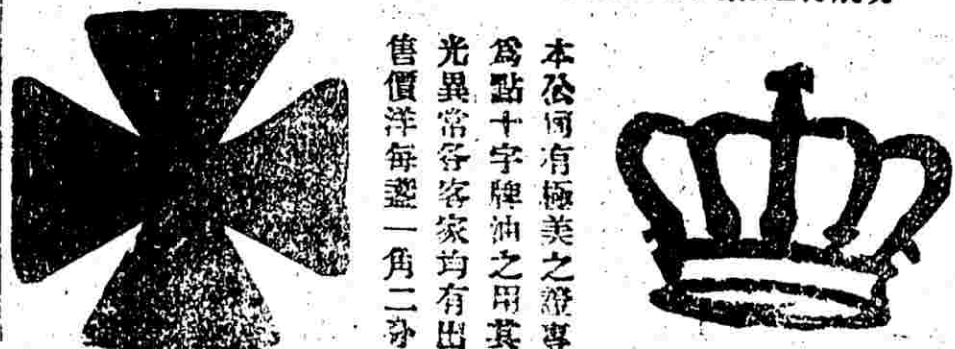 本公司有極美之證專
爲點十字牌油之用其
光異常各客家均有出
售價洋每盞一角二分